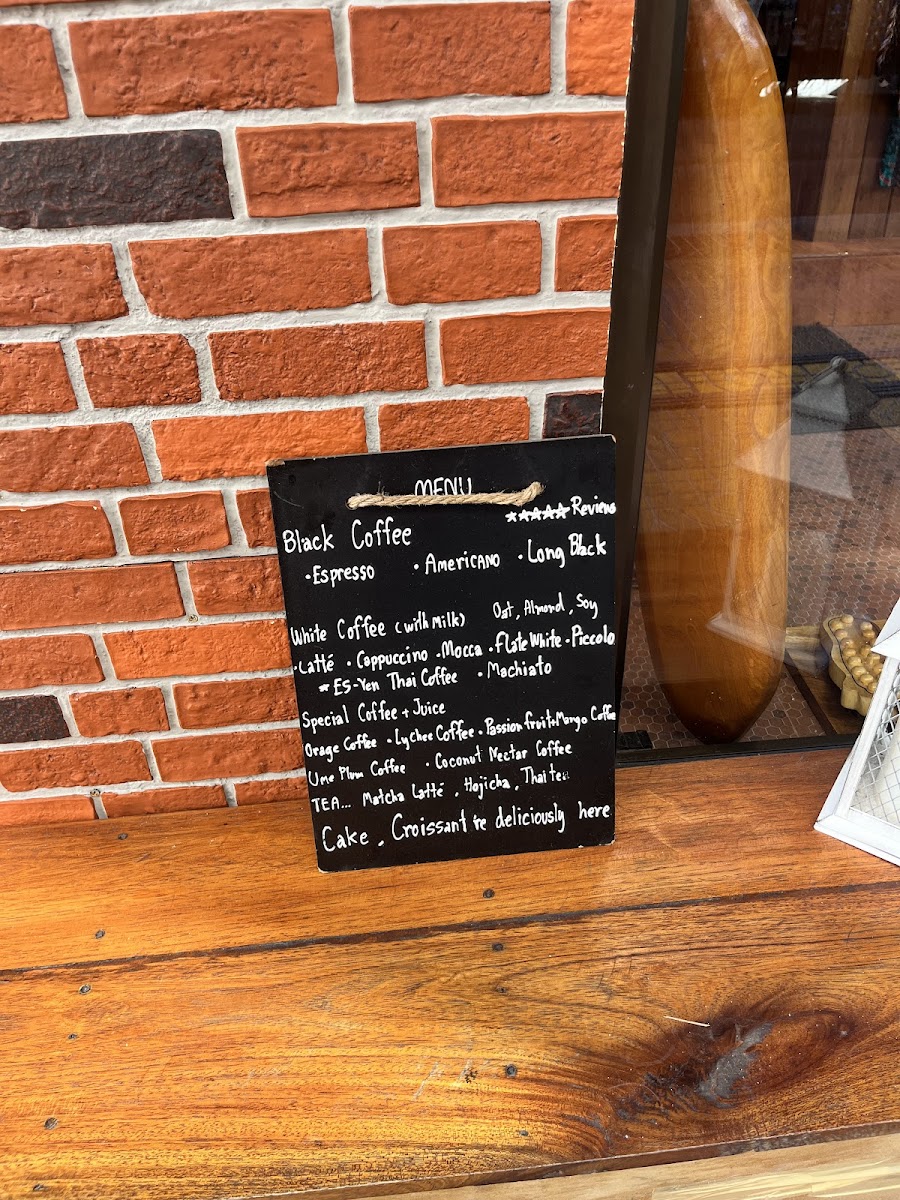 MENU
★★★★★ Reviews
Black Coffee
•Espresso •Americano •Long Black
White Coffee (with Milk) Oat, Almond, Soy
•Latté •Cappuccino •Mocca •Flate White •Piccolo
*Es-Yen Thai Coffee •Machiato
Special Coffee + Juice
Orage Coffee •Lychee Coffee •Passion fruit+Mango Coffee
Ume Plum Coffee •Coconut Nectar Coffee
TEA... Matcha Latté, Hojicha, Thai tea
Cake, Croissant 're deliciously here